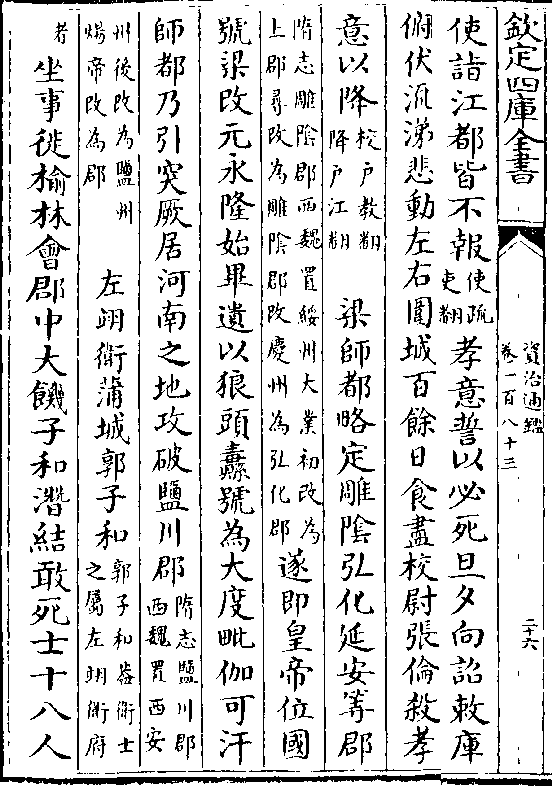 欽定四庫全書
資治通鑑
卷一百八十三
二十六
使詣江都皆不報使疏
吏翻孝意誓以必死旦夕向詔敕庫
俯伏流涕悲動左右圍城百餘日食盡校尉張倫殺孝
意以降校户教翻
降户江翻 梁師都略定雕陰弘化延安等郡
隋志雕陰郡西魏置綏州大業初改為
上郡尋改為雕陰郡改慶州為弘化郡遂即皇帝位國
號梁改元永隆始畢遺以狼頭纛號為大度毗伽可汗
師都乃引突厥居河南之地攻破鹽川郡隋志鹽川郡
西魏置西安
州後改為鹽州
煬帝改為郡 左翊衛蒲城郭子和郭子和葢衛士
之屬左翊衛府
者坐事徙榆林會郡中大饑子和潛結敢死士十八人